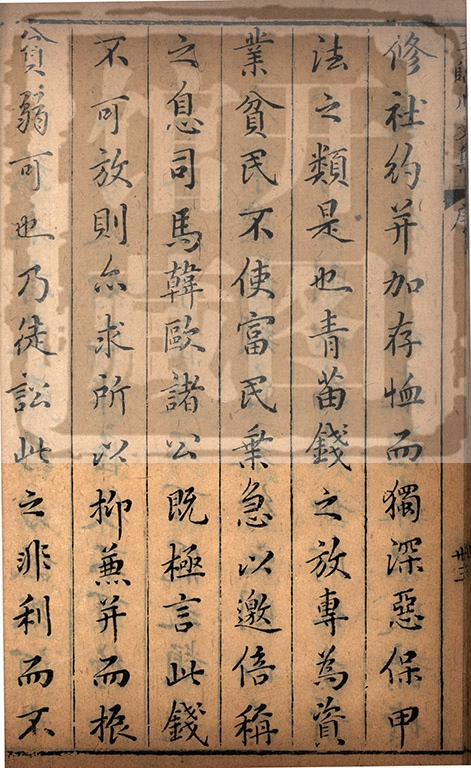 修社約并加存恤而獨深惡保甲
法之類是也青苗錢之放專為資
業貧民不使富民乗急以邀倍稱
之息司馬韓歐諸公既極言此錢
不可放則亦求所以抑兼并而振
貧弱可也乃徒訟此之非利而不